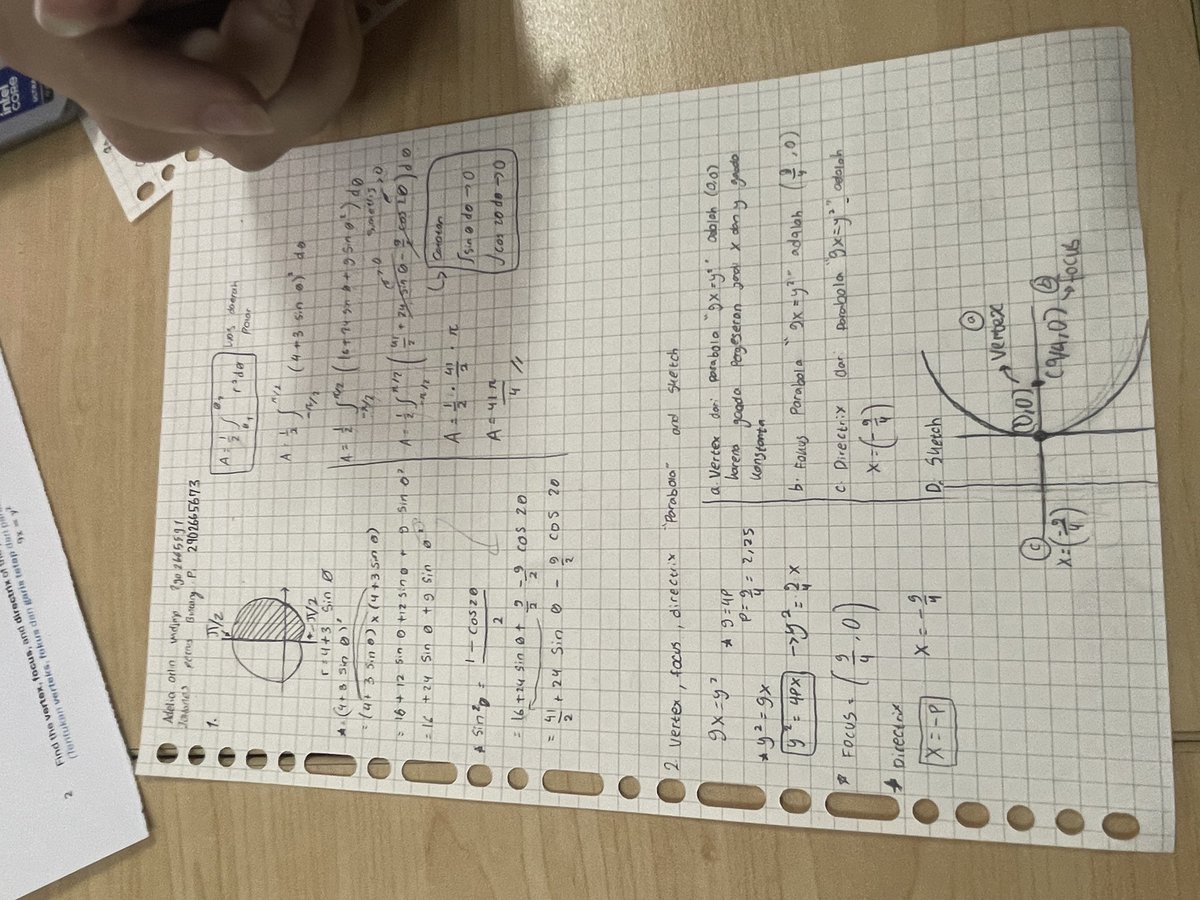 intel
CORE
2
Find the vertex, focus, and directrix of the
(Tentukan verteks, fokus dan garis tetap dari
9x = y²
1.
π/2
-π/2
r = 4+3 sin θ
* = (4+3 sin θ)²
= (4+3 sin θ) x (4+3 sin θ)
= 16 + 12 sin θ + 12 sin θ + 9 sin θ²
= 16 + 24 sin θ + 9 sin θ²
* sin²θ = 1 - cos 2θ / 2
= 16 + 24 sin θ + 9/2 - 9/2 cos 2θ
= 41/2 + 24 sin θ - 9/2 cos 2θ
A = 1/2 ∫ r² dθ
Luas daerah
Polar
A = 1/2 ∫ -π/2 π/2 (4+3 sin θ)² dθ
A = 1/2 ∫ -π/2 π/2 (16+24 sin θ + 9 sin θ²) dθ
A = 1/2 ∫ -π/2 π/2 (41/2 + 24 sin θ - 9/2 cos 2θ) dθ
Catatan
∫ sin θ dθ → 0
∫ cos 2θ dθ → 0
A = 1/2 · 41/2 · π
A = 41π/4 //
2. Vertex, focus, directrix "Parabola" and sketch
9x = y²
* 9 = 4P
P = 9/4 = 2,25
* y² = 9x
y² = 4Px → y² = 9/4 x
* Focus = (9/4, 0)
* Directrix
x = -P
x = -9/4
a. Vertex dari parabola "9x = y²" adalah (0,0)
karena gaada pergeseran pada x dan y gaada
konstanta
b. Fokus Parabola "9x = y²" adalah (9/4, 0)
c. Directrix dar Parabola "9x = y²" adalah
x = (-9/4)
D. Sketch
(0,0) → Vertex
a
(9/4, 0) → Focus
b
c
x = (-9/4)